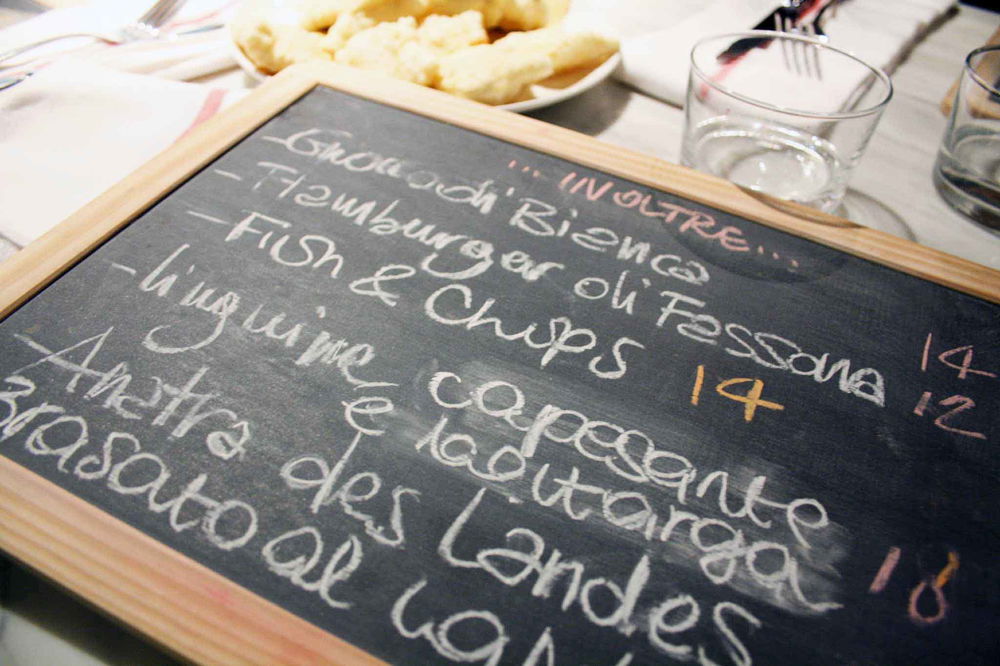 ... INOLTRE...
- di Bianca 14
- Hamburger di Fassona 12
- Fish & Chips 14
- linguine capesante
e bottarga 18
- Anatra des Landes
Brasato al